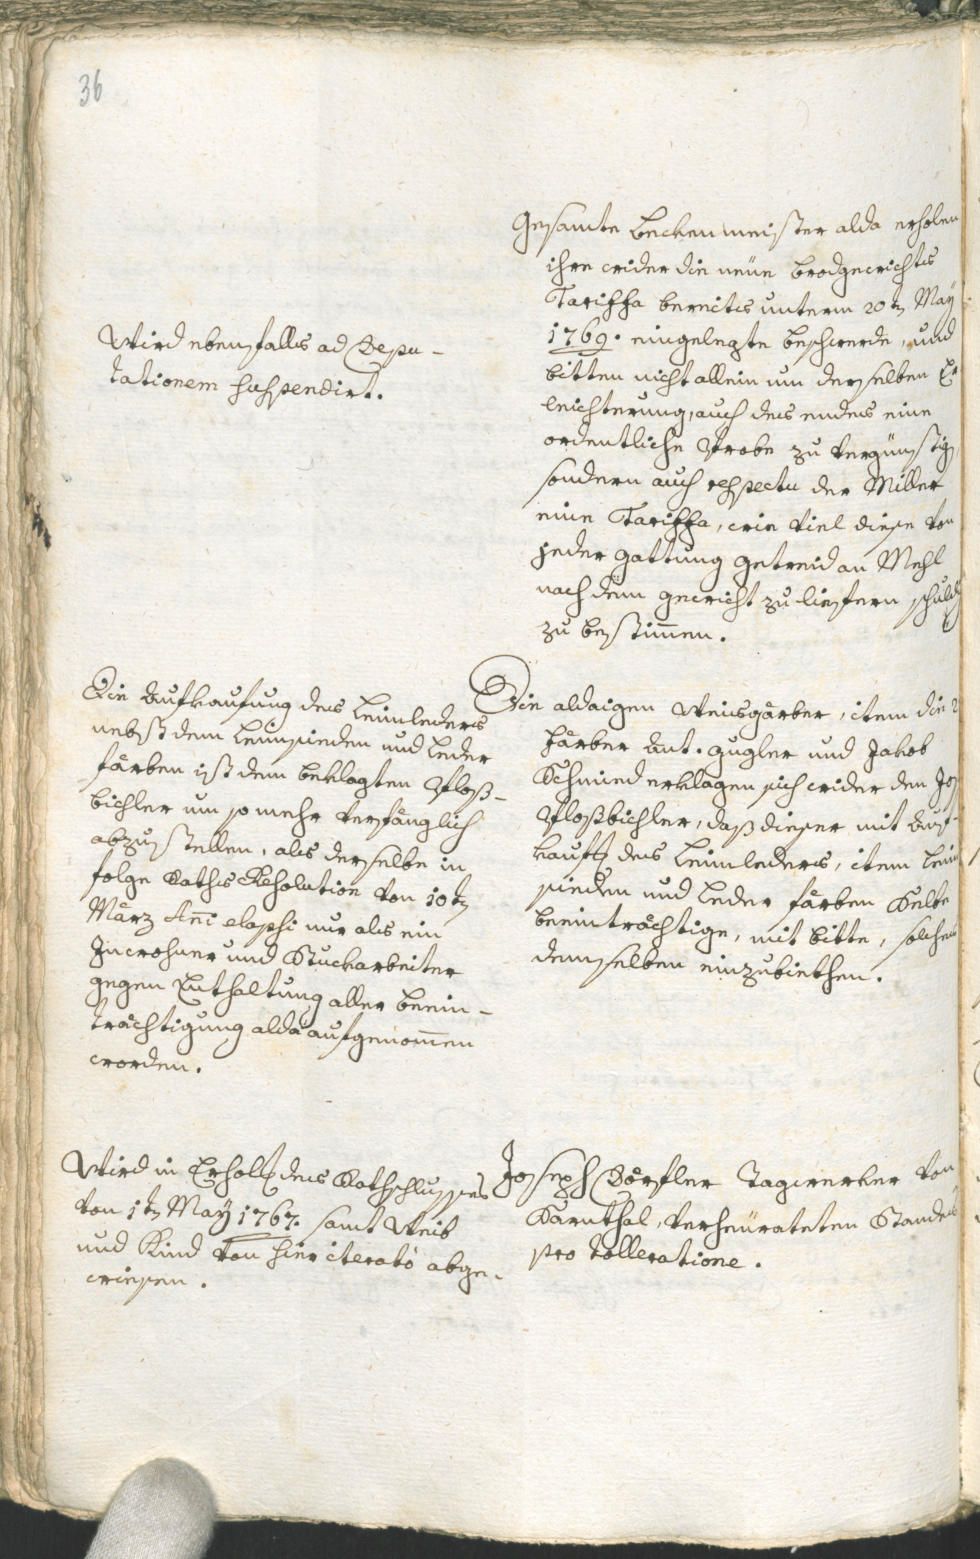 36
Gesamte Beckenmeister alda erholen
ihre wider die neüe Brodgewichts
Tariffa bereits unterm 20t May
1769. eingelegte beschwerde, und
bitten nicht allein um derselben Er
leichterung, auch des endes eine
ordentliche Probe zu vergünstig
sondern auch respectu der Müller
eine Tariffa, wie viel diese von
jeder gattung getreid an Mehl
nach dem gewicht zu liefern schuld
zu bestimen.
Wird ebenfalls ad Depu-
tationem suspendirt.
Die aldaigen Weisgärber, item die 2
färber Ant. Gugler und Jakob
Schmied erklagen sich wider den Jos
Ploßbichler, daß dieser mit Auf-
kauff des Leimleders, item Leim
sieden und Leder färben Selbe
beeinträchtige, mit bitte, solches
demselben einzubiethen.
Die Aufkaufung des Leimleders
nebst dem Leimsieden und Leder
färben ist dem beklagten Ploß-
bichler um so mehr verfänglich
abzustellen, als derselbe in
folge Raths Resolution von 10t
März Ani elapsi nur als ein
Inwohner und Stuckarbeiter
gegen Enthaltung aller beein-
trächtigung alda aufgenomen
worden.
Joseph Dörfler Tagwerker von
Karnthal, verheürateten Standes
pro tolleratione.
Wird in Erholt des Rathschlusses
von 1t May 1767. samt Weib
und Kind von hier iterato abge-
wiesen.